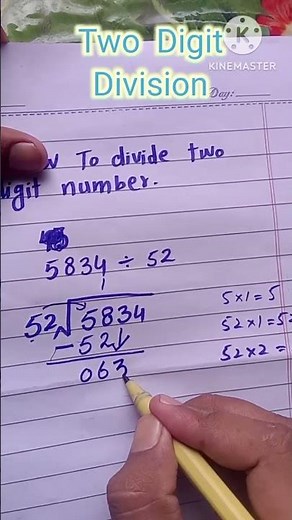 Two Digit
Division
KINEMASTER
Day:
To divide two
digit number.
5834 ÷ 52
1
52 5834
- 52
063
5×1=5
52×1=52
52×2=